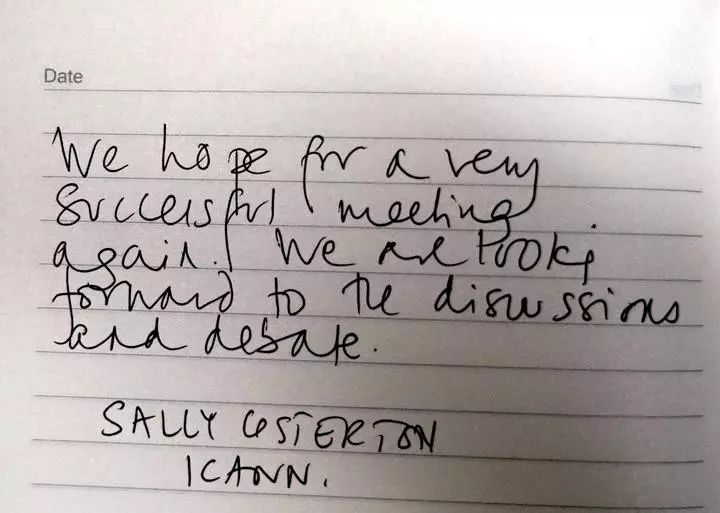 Date
We hope for a very
successful meeting
again. We are looking
forward to the discussions
and debate.
SALLY COSTERTON
ICANN.